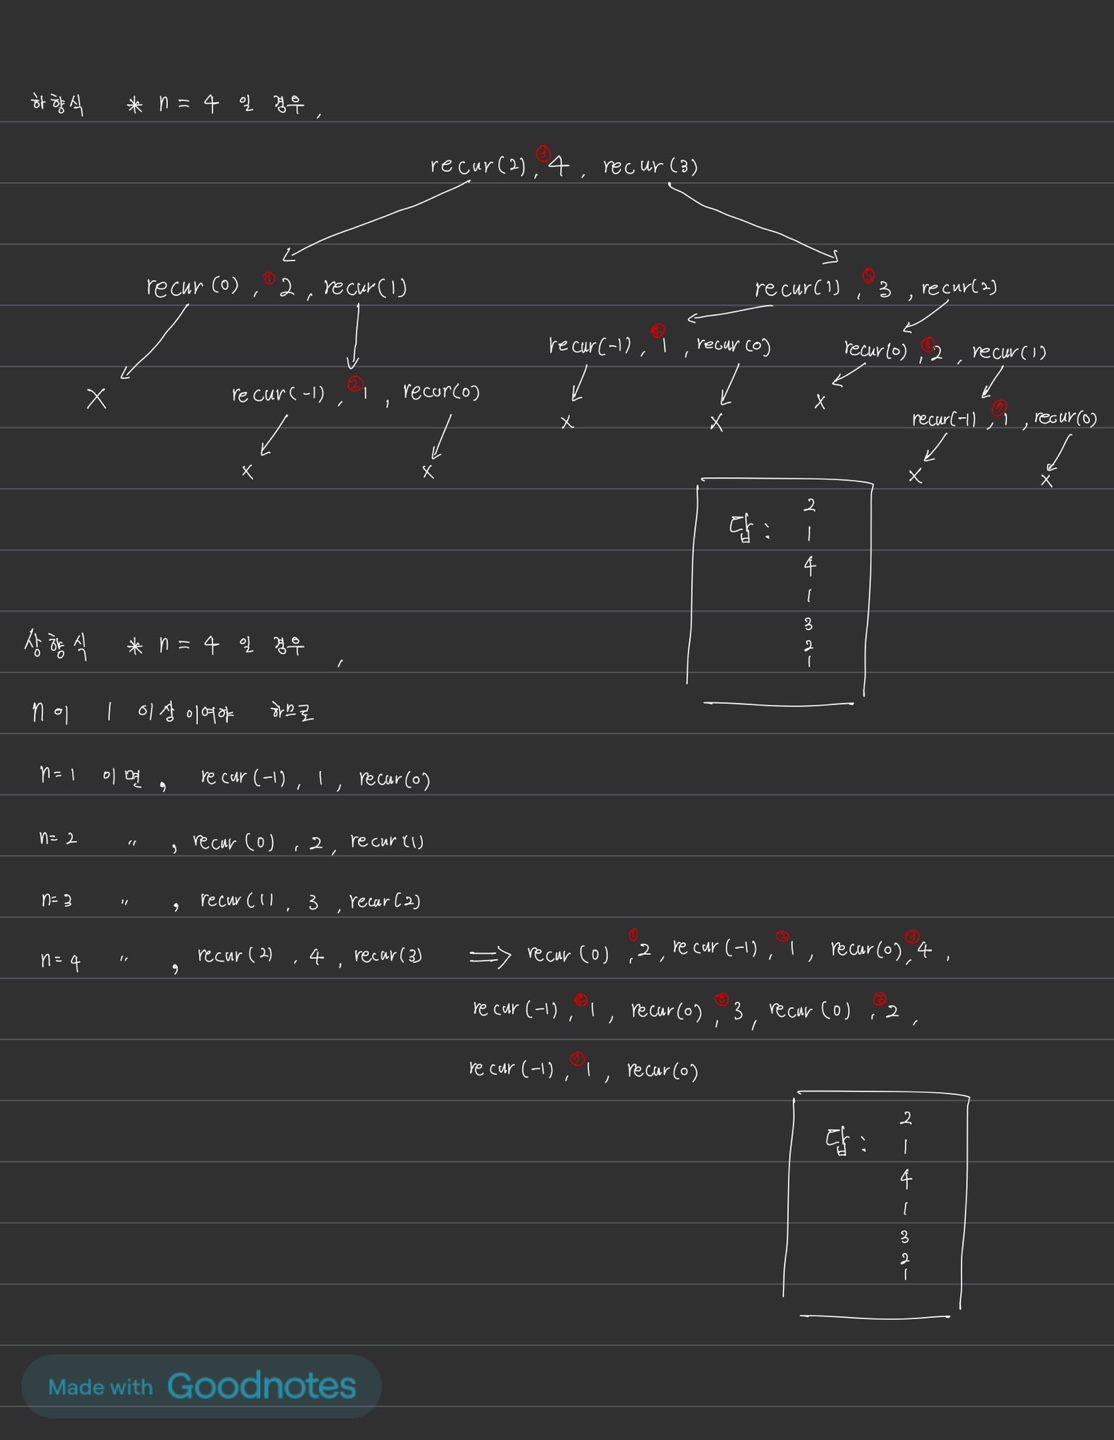 하향식 * n = 4 일 경우,
recur(2), ③ 4, recur(3)
recur(0), ① 2, recur(1)
recur(1), ⑤ 3, recur(2)
recur(-1), ④ 1, recur(0)
recur(0), ⑥ 2, recur(1)
X
recur(-1), ② 1, recur(0)
x
x
x
recur(-1), ⑦ 1, recur(0)
x
x
x
x
답:
2
1
4
1
3
2
1
상향식 * n = 4 일 경우,
n이 1 이상이여야 하므로
n=1 이면, recur(-1), 1, recur(0)
n=2 〃, recur(0), 2, recur(1)
n=3 〃, recur(1), 3, recur(2)
n=4 〃, recur(2), 4, recur(3) ⇒ recur(0), ① 2, recur(-1), ② 1, recur(0), ③ 4,
recur(-1), ④ 1, recur(0), ⑤ 3, recur(0), 2,
recur(-1), ⑦ 1, recur(0)
답:
2
1
4
1
3
2
1
Made with Goodnotes